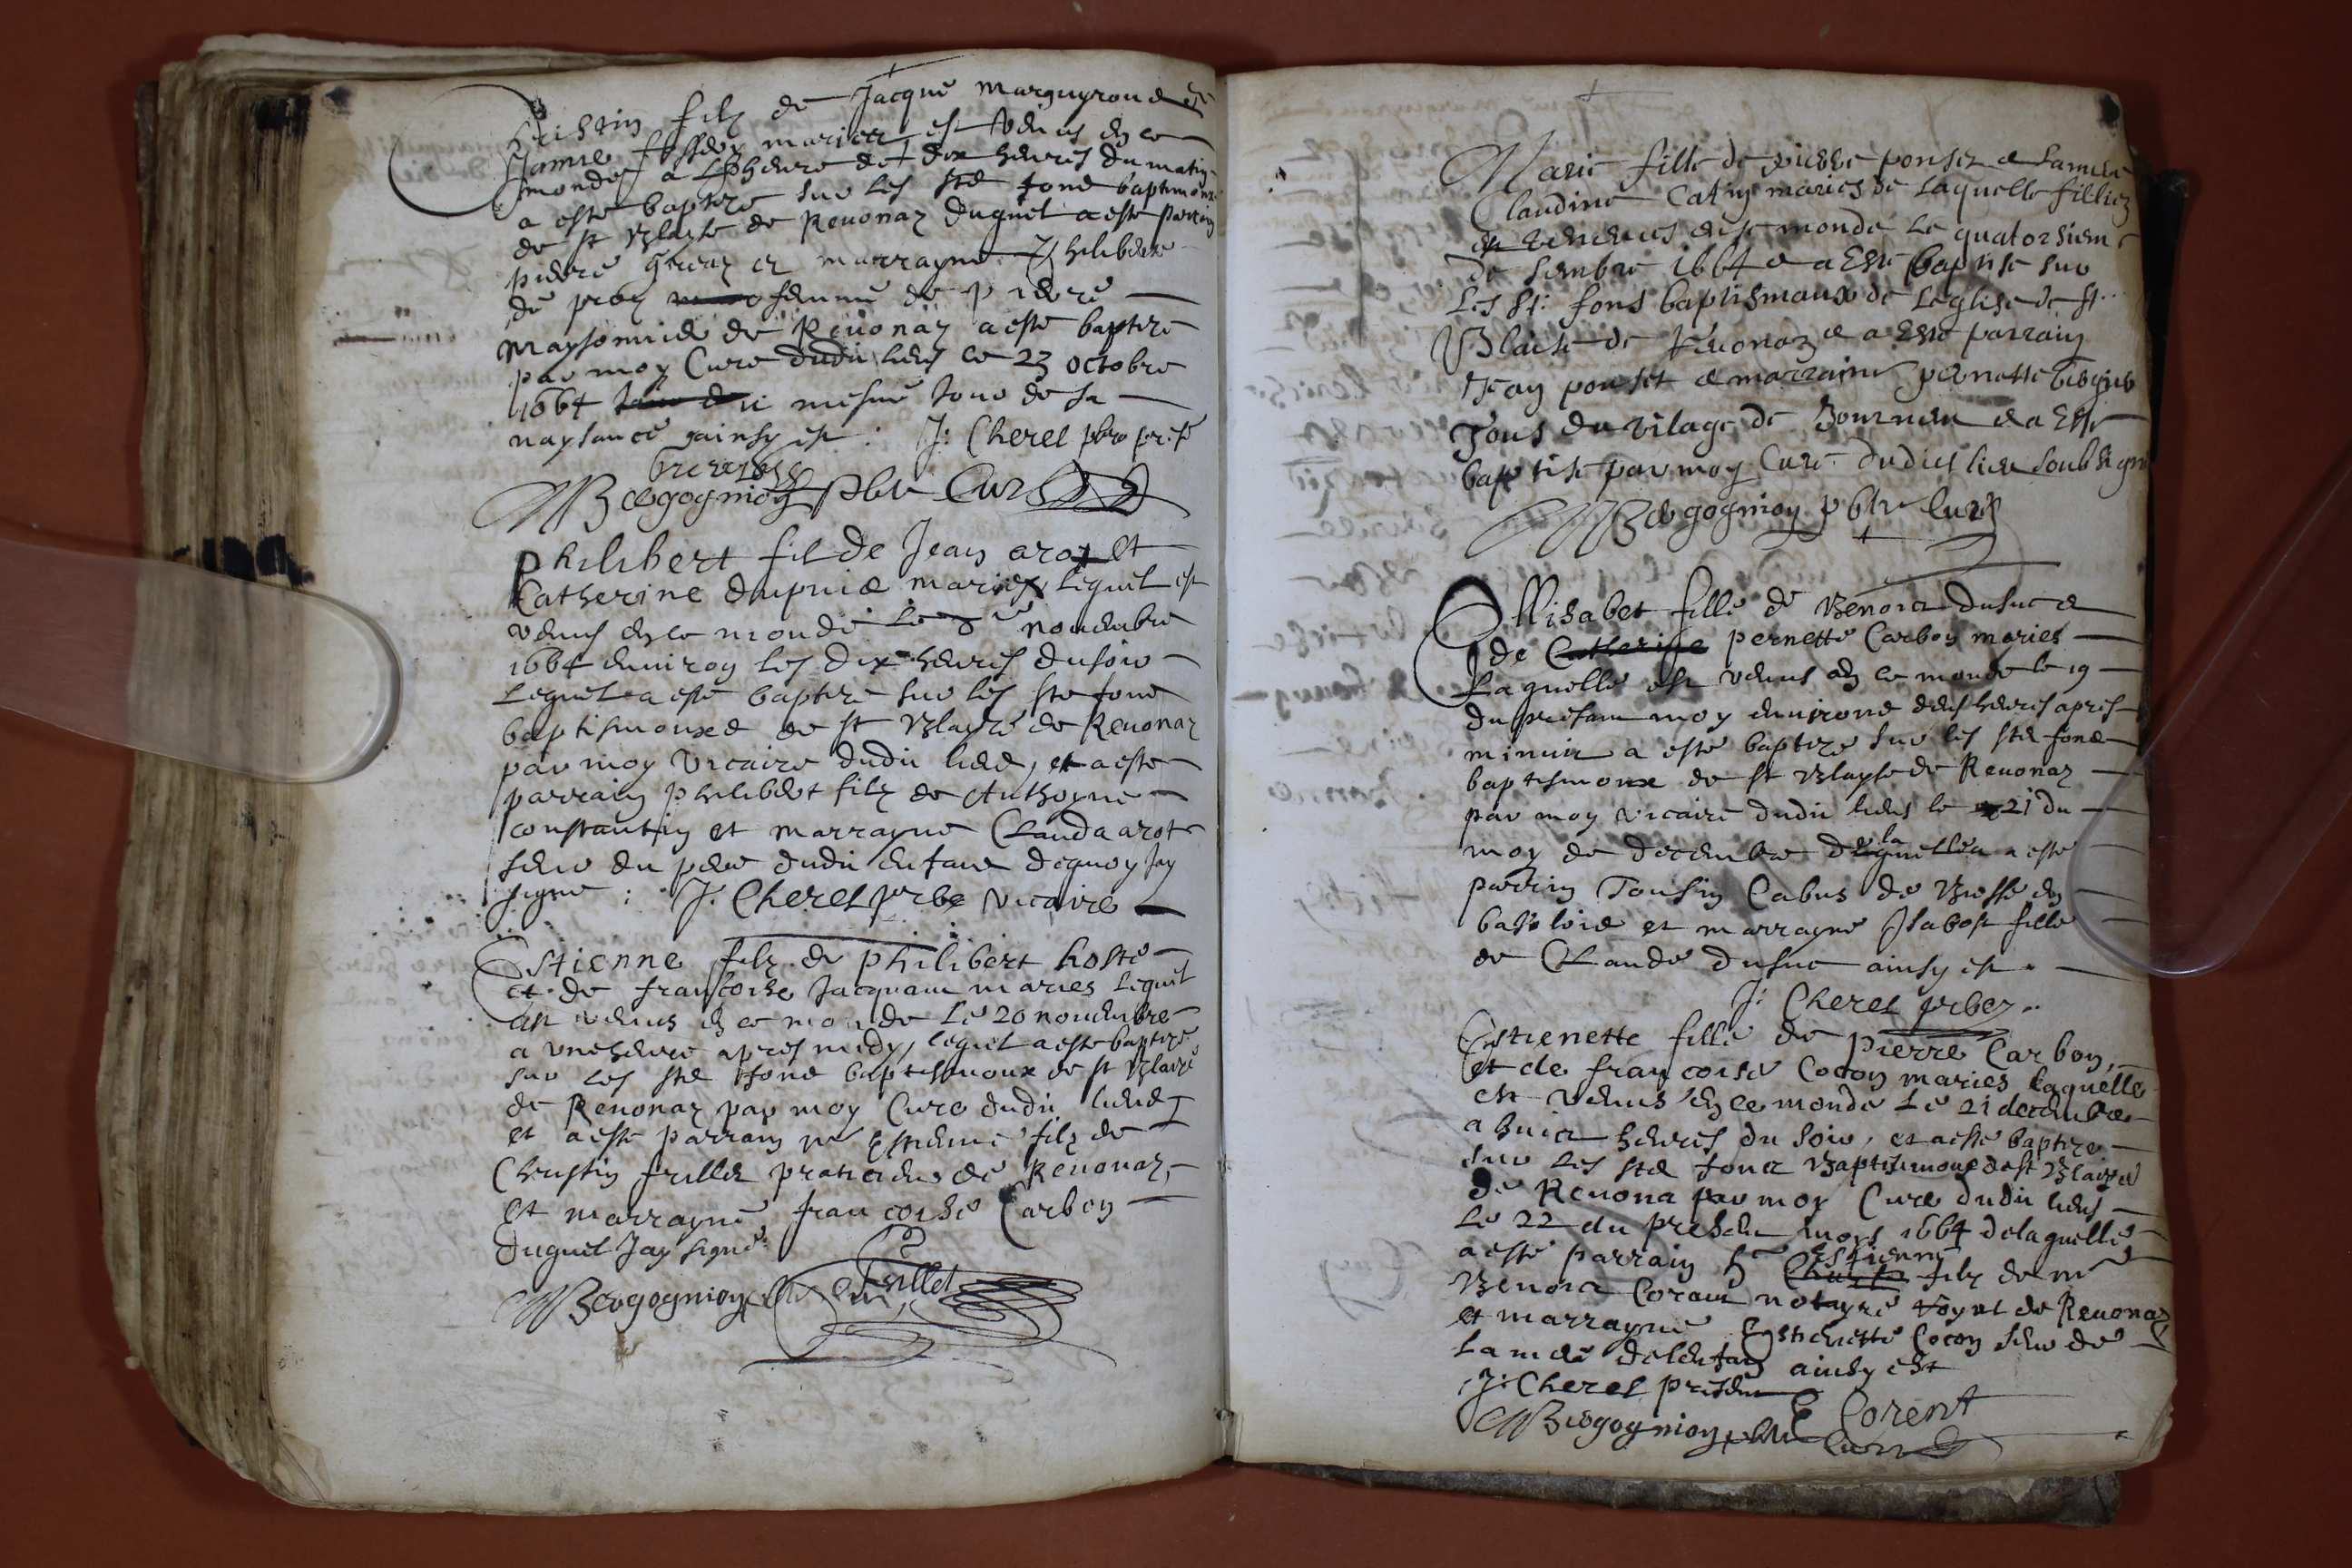 Christin filz de Jacque marguyrond et
Jamie maries est venus en ce
monde a Lheure de dix heures du matin
a esté baptizé sur les ste fond baptimaux
de st Blayse de Reuonaz duquel a esté parrin
pierre et marrayne Philiberte
de femme de pierre
maysonnid de Reuonaz a esté baptizé
par moy Curé dudit lieu ce 23 octobre
1664 mesme jour de sa
naysance ainsy est : J: Cherel pbr
Bergogniony pbr Curé
philibert fil de Jean arot et
Catherine dupuid mariez lequel est
venus en ce monde le 8e nouembre
1664 enuiron les dix heures du soir
Lequel a esté baptizé sur les ste fond
baptismouxd de st Blayze de Reuonaz
par moy vicaire dudit lieu, et a esté
parrain philibert filz de Anthoyne
constantin et marrayne Clauda arot
seur du pere dudit enfant dequoy Jay
signé : J. Cherel prbe vicaire
Estienne filz de philibert hoste
et de francoise Jacquand maries lequel
est venus en ce monde le 20 nouembre
a vne heure apres midy, lequel a esté baptizé
sur les ste fond baptismoux de st Blaize
de Reuonaz par moy Curé dudit lieu
et a esté parrain me Estienne filz de
Christin frillet praticien de Reuonaz,
et marrayne, francoise Carbon
duquel Jay signé
Bergogniony Curé frillet
Marie fille de pierre ponset et
Claudine Catin maries de laquelle fillie
est venues en se monde le quatorsieme
de 1664 et a Esté baptisé sur
Les St: fons baptismaux de Leglise de St
Blaise de Reuonaz et a Esté parrain
Jean ponset et marraine pernette
Tous du vilage de et a Esté
baptisé par moy Curé dudict lieu soubsigné
Bergogniony pbtr Curé
Ellisabet fille de Benoict dusuc et
de Catherine pernette Carbon maries
Laquelle est venus en ce monde le 19
du present moy enuirond deux heures apres
minuit a esté baptizé sur les ste fond
baptesmoux de st Blayse de Reuonaz
par moy vicaire dudit lieu le 21 du
moy de decembre de laquelle a esté
parrin Tousin Cabus de en
et marrayne Isabost fille
de Claude dusuc ainsy est
J: Cherel prbez
Estienette fille de pierre Carbon,
et de francoise Cocon maries laquelle
est venus en ce monde le 21 decembre
a huict heures du soir, et a esté baptizé
sur les ste fond Baptismoux de st Blaize
de Reuona par moy Curé dudit lieu
le 22 du present mois 1664 de laquelle
a esté parrain Estienne filz de me
Benoict Corent notayre royal de Reuonaz
et marrayne Estienette Cocon seur de
la mere delenfan ainsy est
J: Cherel present
E Corent
Bergogniony pbtr Curé